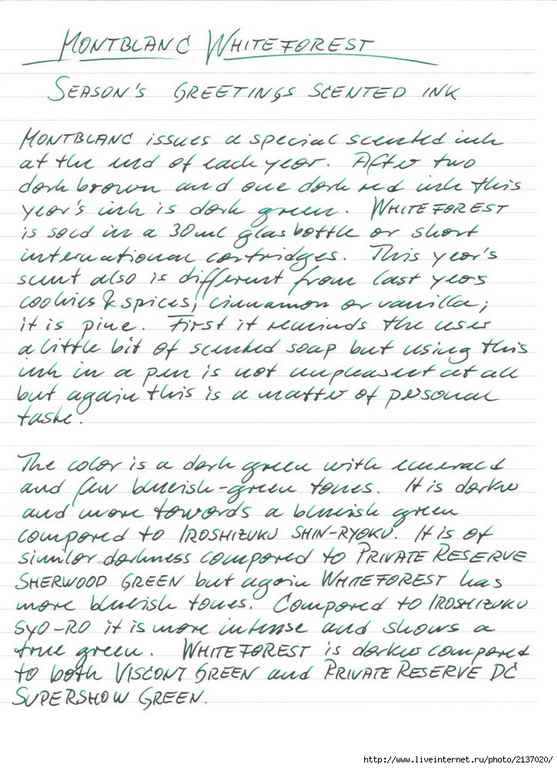 MONTBLANC WHITEFOREST
SEASON'S GREETINGS SCENTED INK
MONTBLANC issues a special scented ink
at the end of each year. After two
dark brown and one dark red ink this
year's ink is dark green. WHITEFOREST
is sold in a 30ml glas bottle or short
international cartridges. This year's
scent also is different from last years
cookies & spices, cinnamon or vanilla;
it is pine. First it reminds the user
a little bit of scented soap but using this
ink in a pen is not unpleasent at all
but again this is a matter of personal
taste.
The color is a dark green with emerald
and few blueish-green tones. It is darker
and more towards a blueish green
compared to IROSHIZUKU SHIN-RYOKU. It is of
similar darkness compared to PRIVATE RESERVE
SHERWOOD GREEN but again WHITEFOREST has
more blueish tones. Compared to IROSHIZUKU
SYO-RO it is more intense and shows a
true green. WHITEFOREST is darker compared
to both VISCONTI GREEN and PRIVATE RESERVE DC
SUPERSHOW GREEN.
http://www.liveinternet.ru/photo/2137020/